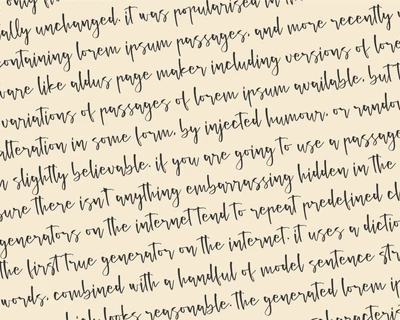 only
ally unchanged. it was popularised in
containing lorem ipsum passages, and more recently
ware like aldus page maker including versions of lore
variations of passages of lorem ipsum available, but t
alteration in some form, by injected humour, or rando
n slightly believable. if you are going to use a passage
sure there isn't anything embarrassing hidden in the
generators on the internet tend to repeat predefined ch
the first true generator on the internet. it uses a dictio
words, combined with a handful of model sentence str
looks reasonable. the generated lorem ip
characteris